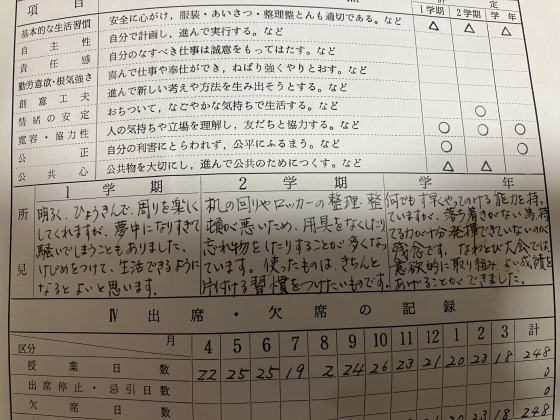 項　目
評　定
1学期　2学期　学年
基本的な生活習慣　安全に心がけ，服装・あいさつ・整理整とんも適切である。など　△　△　△
自主性　自分で計画し，進んで実行する。など
責任感　自分のなすべき仕事は誠意をもってはたす。など
勤労意欲・根気強さ　喜んで仕事や奉仕ができ，ねばり強くやりとおす。など
創意工夫　進んで新しい考えや方法を生み出そうとする。など
情緒の安定　おちついて，なごやかな気持ちで生活する。など　○
寛容・協力性　人の気持ちや立場を理解し，友だちと協力する。など　○　○　○
公正　自分の利害にとらわれず，公平にふるまう。など　○　○
公共心　公共物を大切にし，進んで公共のためにつくす。など　△　△
所見
1学期
明るく、ひょうきんで、周りを楽しく
してくれますが、夢中になりすぎて
騒いでしまうこともありました。
けじめをつけて、生活できるように
なるとよいと思います。
2学期
机の回りやロッカーの整理・整
頓が悪いため、用具をなくしたり
忘れ物をしたりすることが多くなっ
ています。使ったものは、きちんと
片付ける習慣をつけたいものです。
学年
何でも手早くやってのける能力を持っ
ていますが、落ち着きがない為、持
てる力が十分発揮できていないのが
残念です。なわとび大会では、
意欲的に取り組み、よい成績を
あげることができました。
Ⅳ　出席・欠席の記録
区分　月　4　5　6　7　8　9　10　11　12　1　2　3　計
授業日数　22　25　25　19　2　24　26　23　21　20　23　18　248
出席停止・忌引日数　0
欠席日数　0
18　248